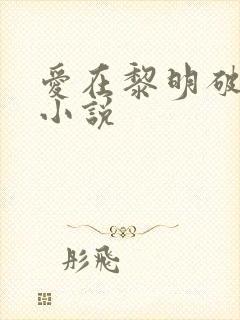 愛在黎明破
小說
彤飛